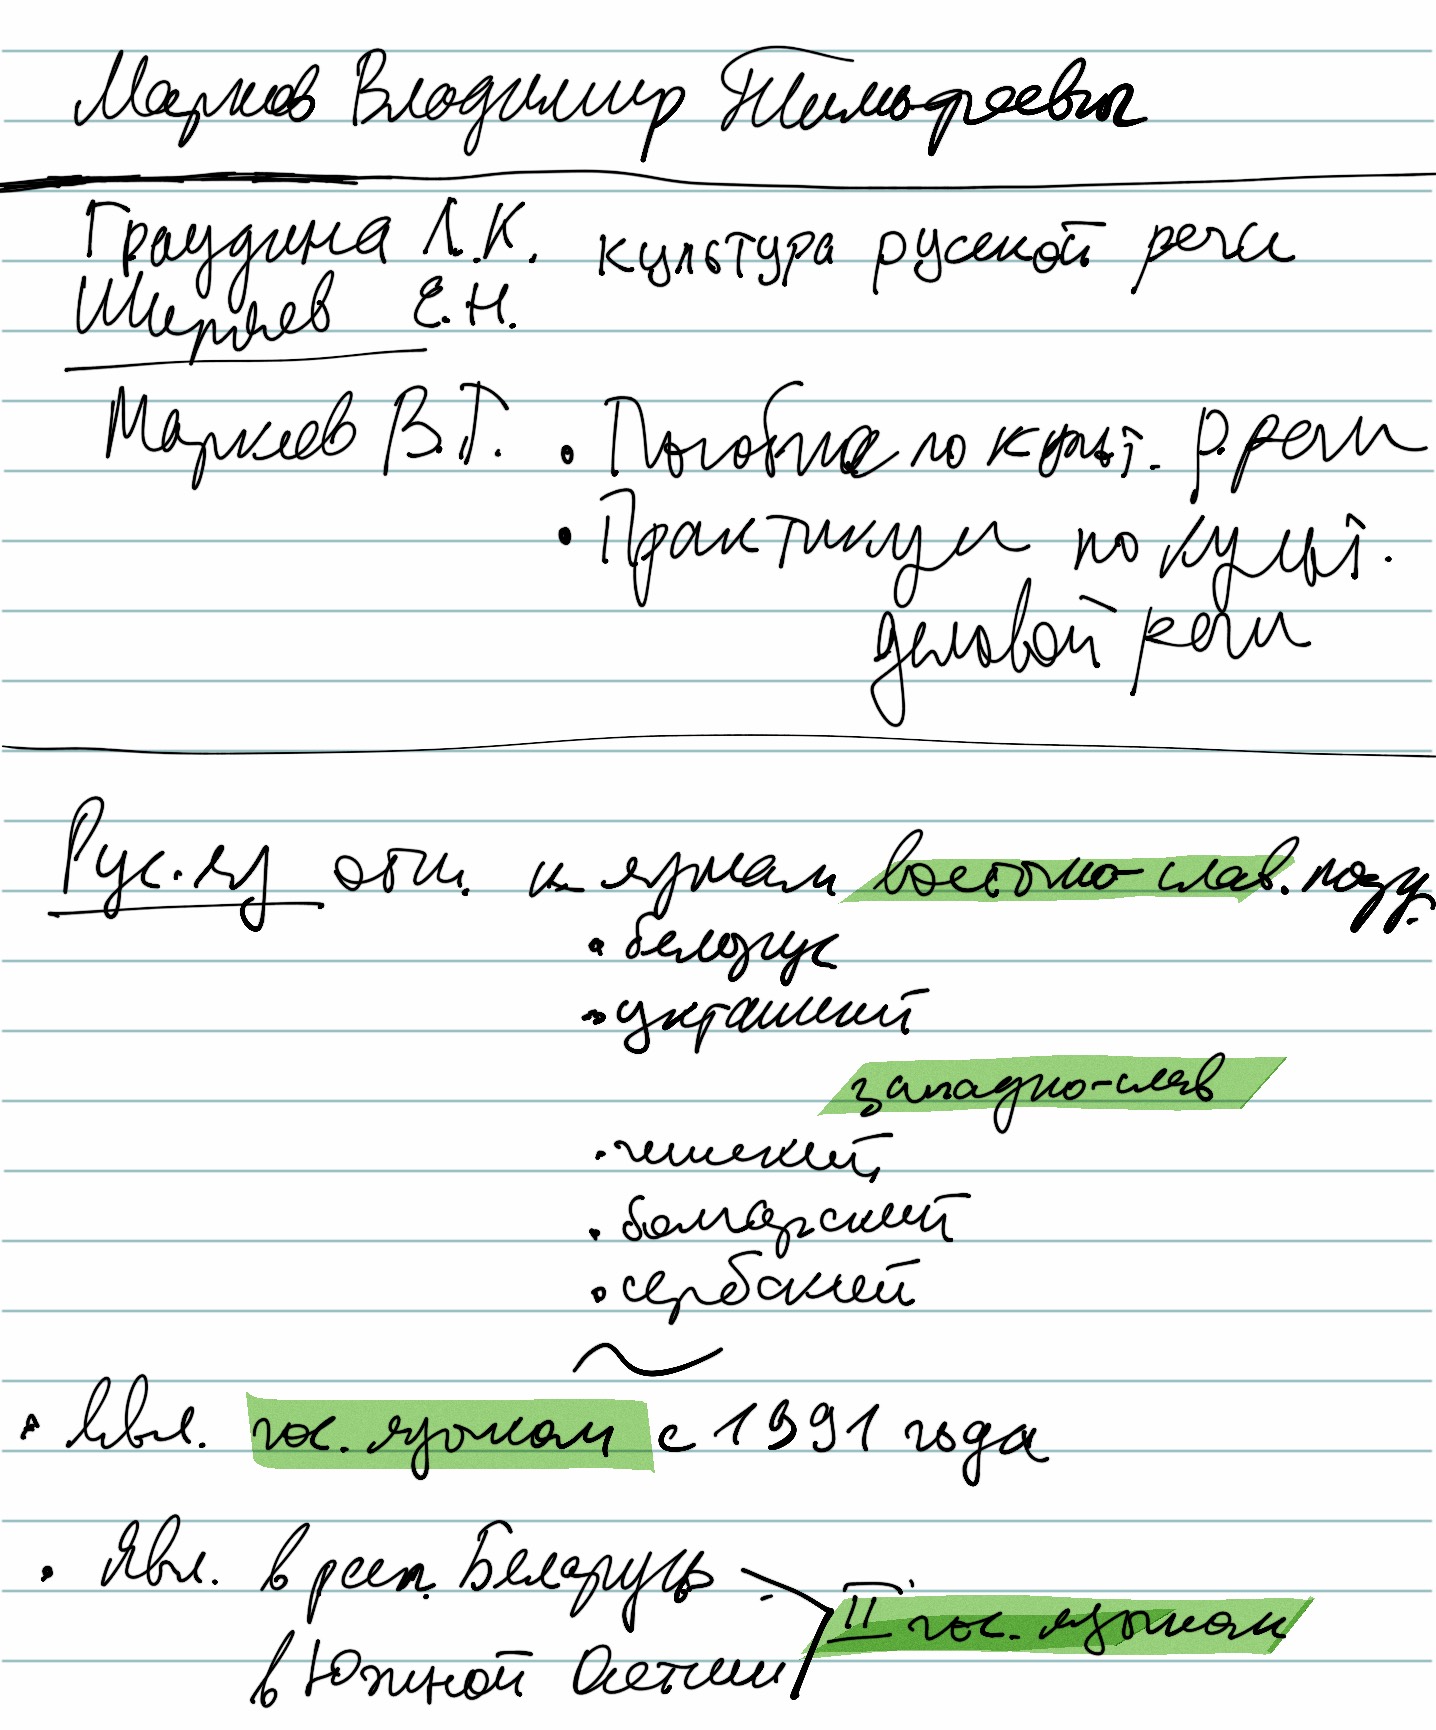 Марков Владимир Тимофеевич
Граудина Л.К. культура русской речи
Ширяев Е.Н.
Марков В.Т. • Пособие по культ. р. речи
• Практикум по культ.
деловой речи
Рус. яз отн. к языкам восточно-слав. подгр.
• белорус
• украинский
западно-слав
• чешский,
• болгарский
• сербский
• Явл. гос. языком с 1991 года
• Явл. в респ. Беларусь -
II гос. языком
в Южной Осетии